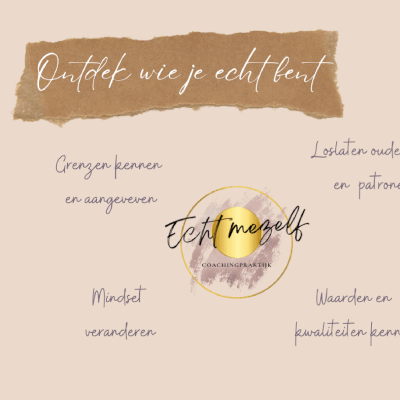 Ontdek wie je echt bent
Grenzen kennen
en aangeveven
Loslaten oude
en patrone
Echt mezelf
COACHINGPRAKTIJK
Mindset
veranderen
Waarden en
kwaliteiten kenn